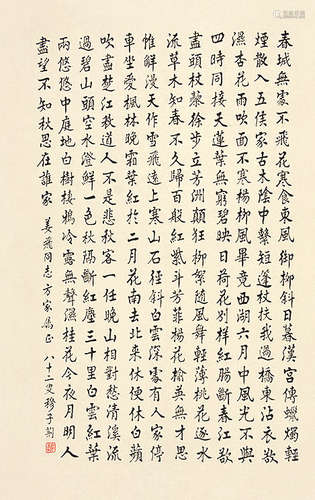 春城無處不飛花寒食東風御柳斜日暮漢宮傳蠟燭輕
煙散入五侯家古木陰中繫短篷杖扶我過橋東沾衣欲
濕杏花雨吹面不寒楊柳風畢竟西湖六月中風光不與
四時同接天蓮葉無窮碧映日荷花別樣紅腸斷春江欲
盡頭杖藜徐步立芳洲顛狂柳絮隨風舞輕薄桃花逐水
流草木知春不久歸百般紅紫鬥芳菲楊花榆莢無才思
惟解漫天作雪飛遠上寒山石徑斜白雲深處有人家停
車坐愛楓林晚霜葉紅於二月花南去北來休便休白蘋
吹盡楚江秋道人不是悲秋客一任晚山相對愁清溪流
過碧山頭空水澄鮮一色秋隔斷紅塵三十里白雲紅葉
兩悠悠中庭地白樹棲鴉冷露無聲濕桂花今夜月明人
盡望不知秋思在誰家 姜飛同志方家為正 八十二叟穆子荊